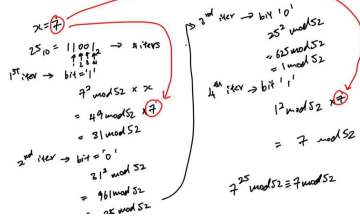 x = 7
25₁₀ = 11001₂ → 4 iters
1 2 3 4
1st iter → bit = '1'
7² mod 52 × x
= 49 mod 52 × 7
= 31 mod 52
2nd iter → bit = '0'
31² mod 52
= 961 mod 52
= 25 mod 52
3rd iter → bit '0'
25² mod 52
= 625 mod 52
= 1 mod 52
4th iter → bit '1'
1² mod 52 × 7
= 7 mod 52
7²⁵ mod 52 ≡ 7 mod 52